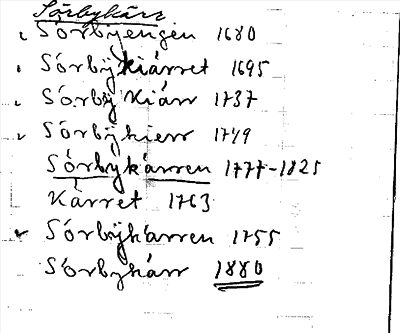 Sörbykärr
Sörbyengen 1680
Sörbykiärret 1695
Sörby Kiärr 1737
Sörbykierr 1749
Sörbykärren 1777-1825
Kärret 1763
Sörbykärren 1755
Sörbykärr 1880